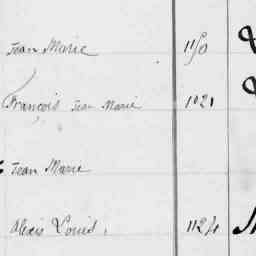 Jean Marie 1150
François Jean Marie 1021
Jean Marie
Alexis Louis, 1124